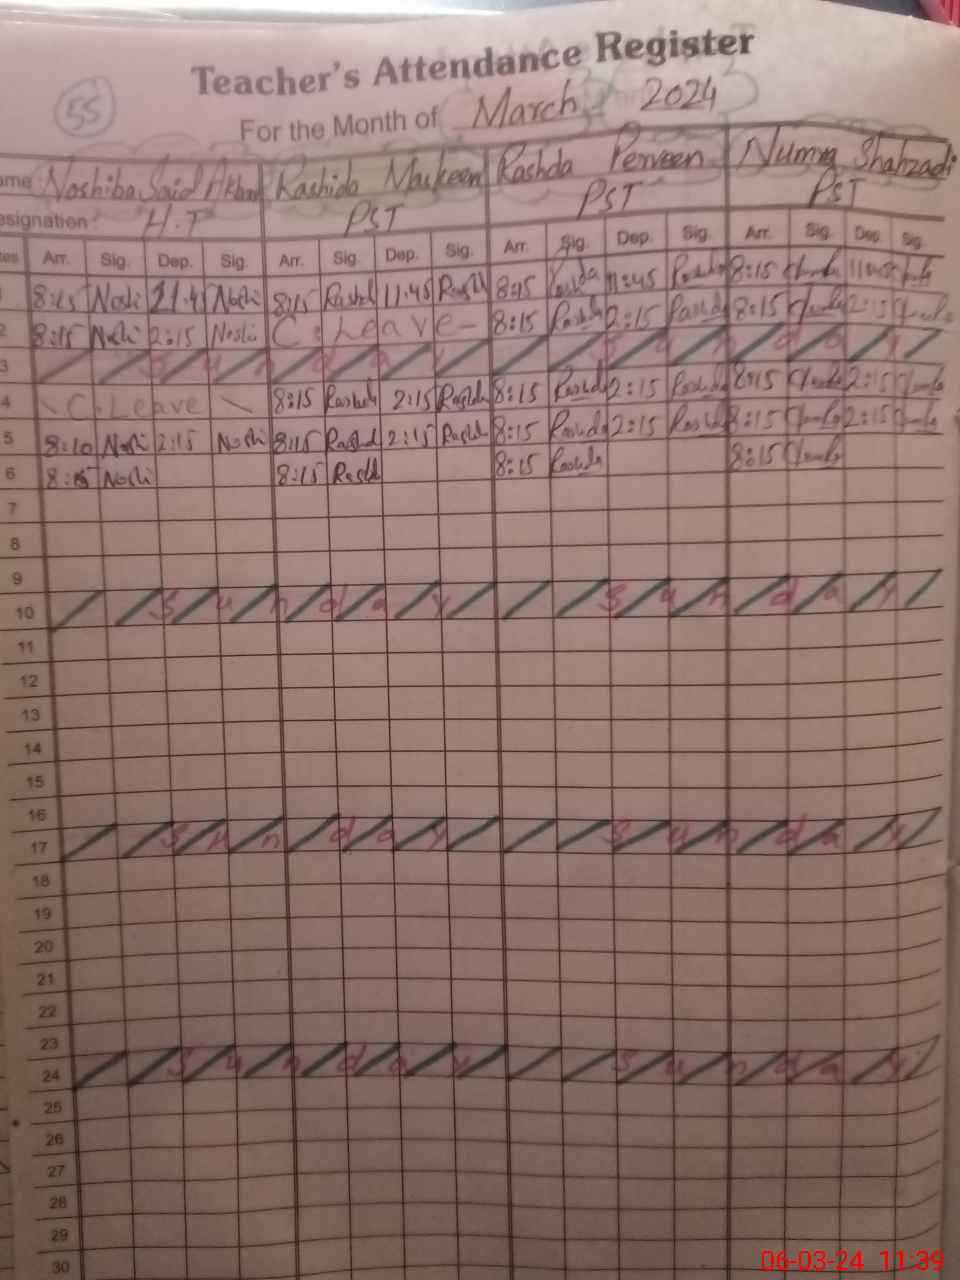 Teacher's Attendance Register
55
For the Month of March 2024
ame Noshiba Said Akbar Rashida Maskeen Rashda Perveen Numra Shahzadi
esignation : H.T PST PST PST
tes Arr. Sig. Dep. Sig. Arr. Sig. Dep. Sig. Arr. Sig. Dep. Sig. Arr. Sig. Dep. Sig.
1 8:15 Noshi 11:45 Noshi 8:15 Rashd 11:45 Rashd 8:15 Rashda 11:45 Rashda 8:15 11:45
2 8:15 Noshi 2:15 Noshi C. Leave - 8:15 Rashda 2:15 Rashda 8:15 2:15
3 Sunday Sunday
4 \ C. Leave \ 8:15 Rashd 2:15 Rashd 8:15 Rashda 2:15 Rashda 8:15 2:15
5 8:10 Noshi 2:15 Noshi 8:15 Rashd 2:15 Rashd 8:15 Rashda 2:15 Rashda 8:15 2:15
6 8:15 Noshi 8:15 Rashd 8:15 Rashda 8:15
7
8
9
10 Sunday Sunday
11
12
13
14
15
16
17 Sunday Sunday
18
19
20
21
22
23
24 Sunday Sunday
25
26
27
28
29
30
06-03-24 11:39